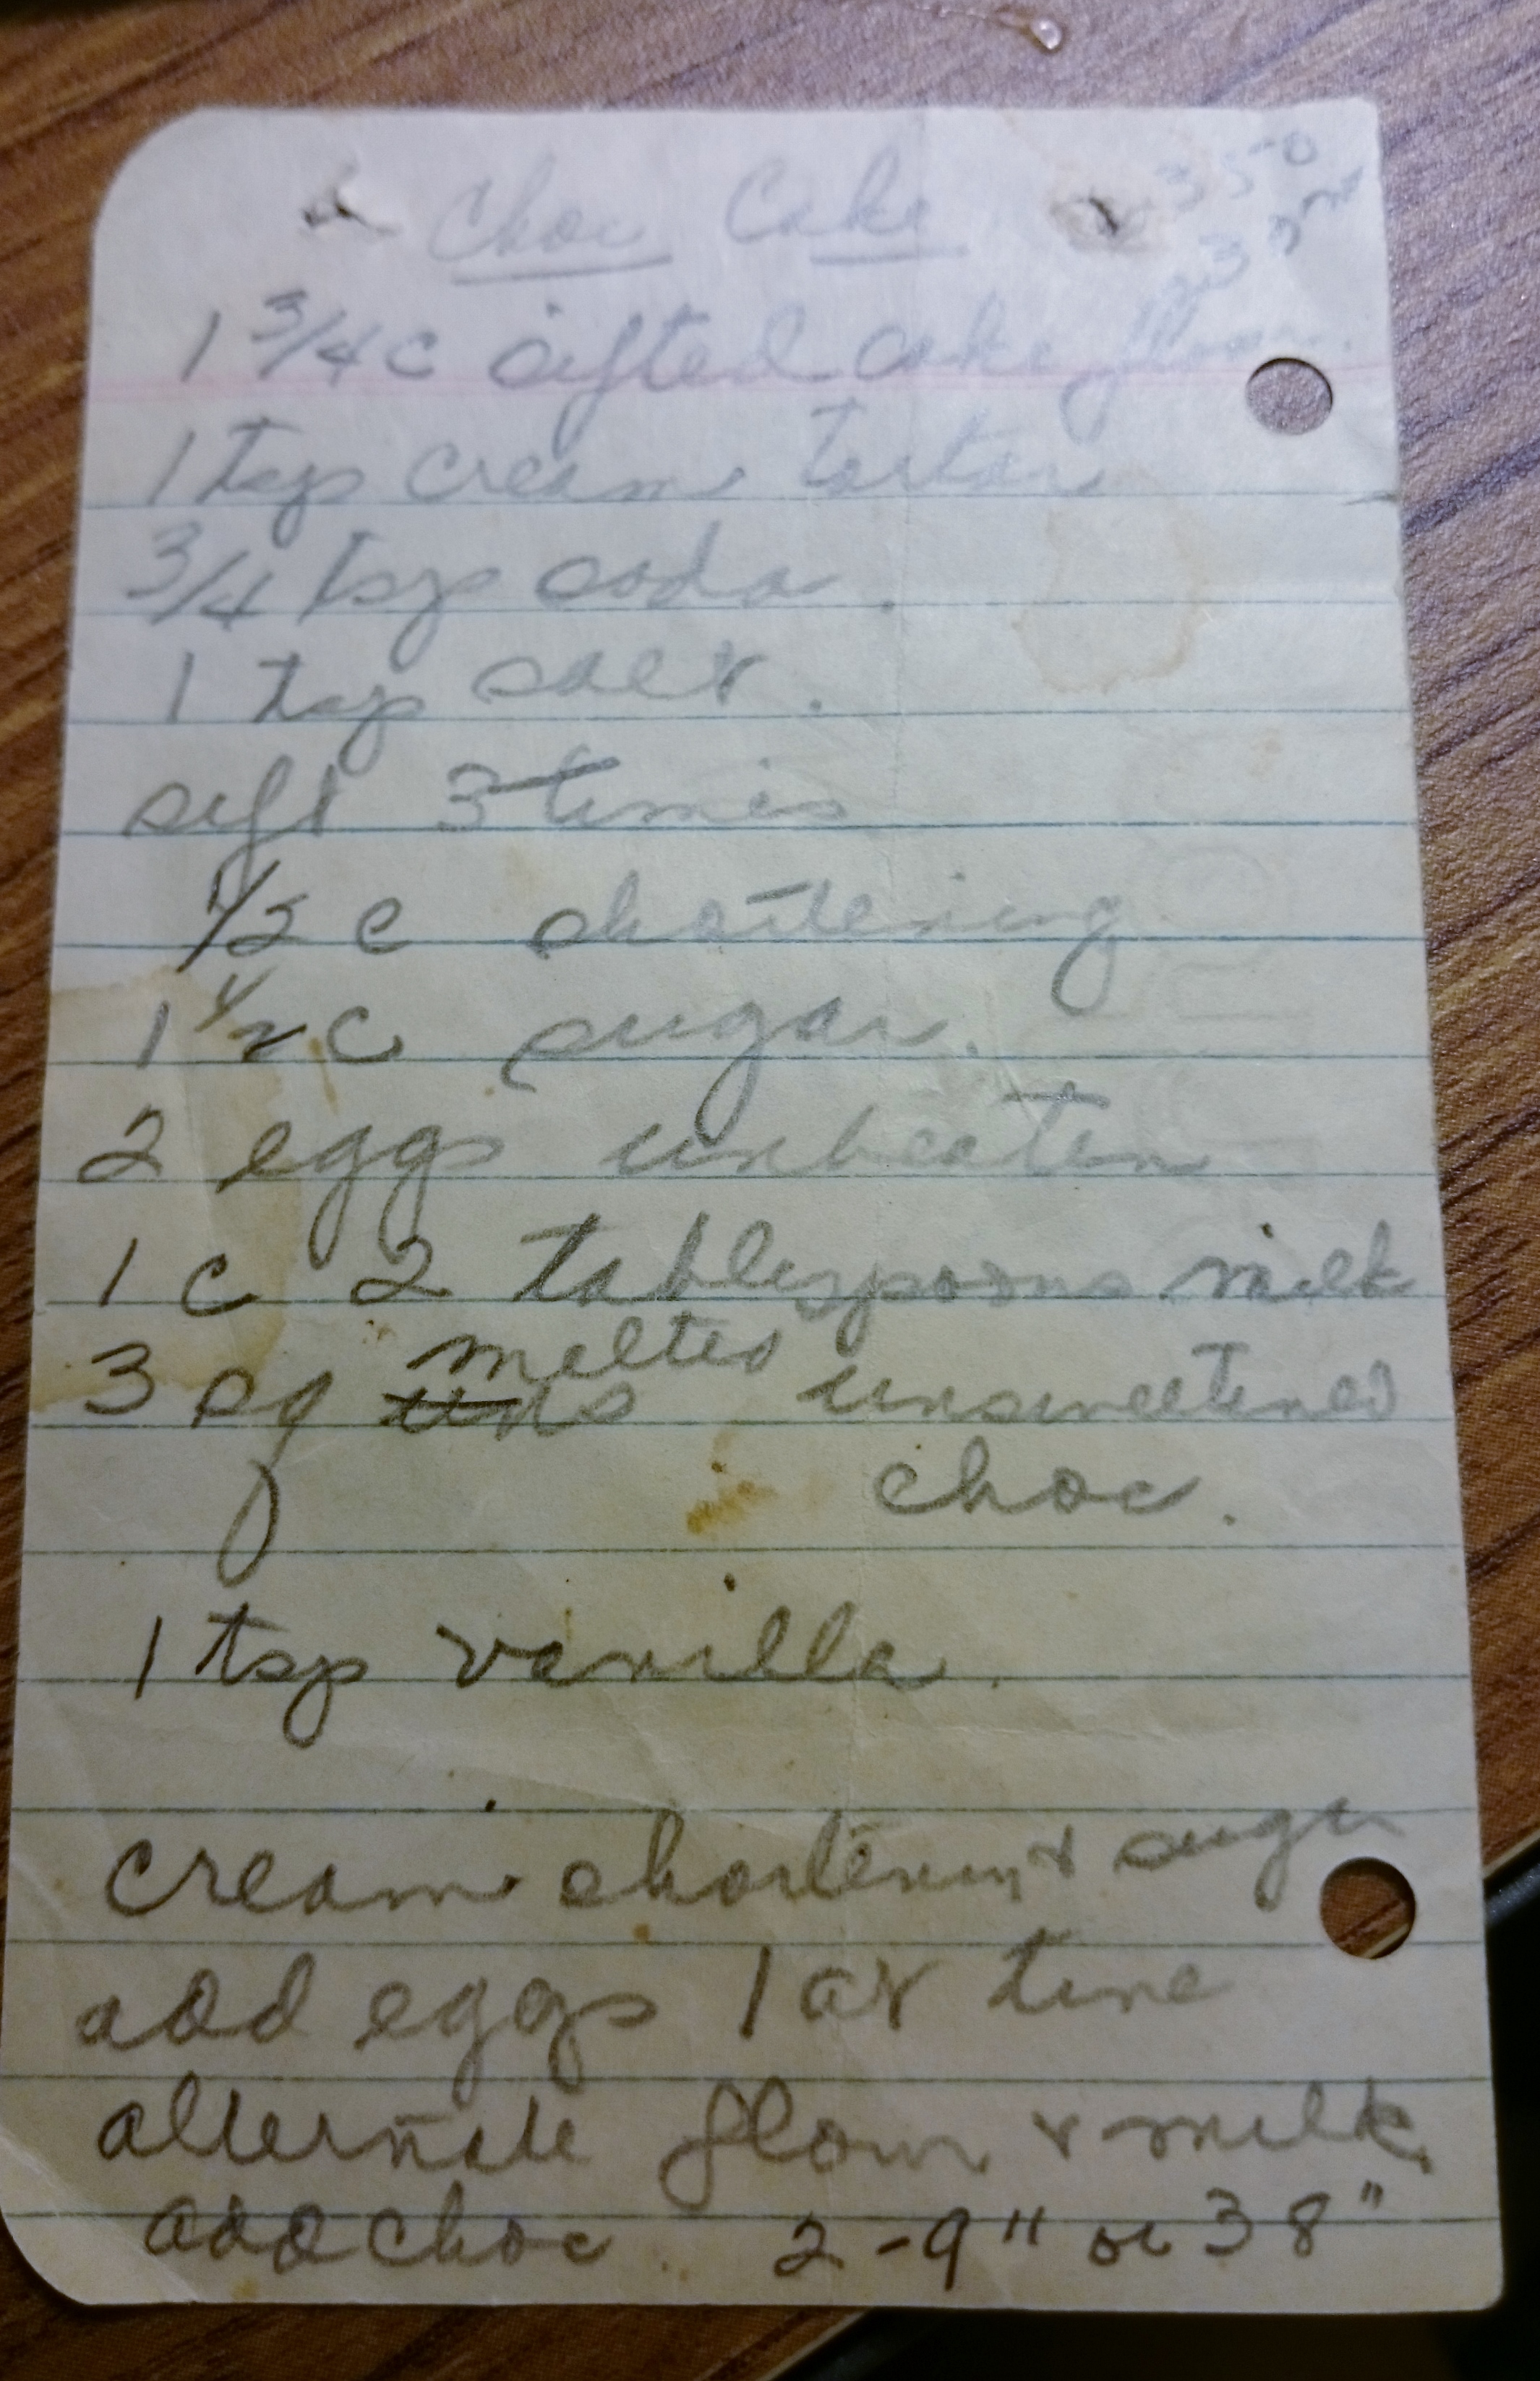 Choc Cake
350
30 m
1 3/4 c sifted cake flour.
1 tsp cream tartar
3/4 tsp soda.
1 tsp salt.
sift 3 times
1/2 c shortening
1 1/2 c sugar.
2 eggs unbeaten
1 c 2 tablespoons milk
melted
3 sq unsweetened
choc.
1 tsp vanilla.
cream shortening & sugar
add eggs 1 at time
alternate flour & milk
add choc. 2-9" or 3 8"